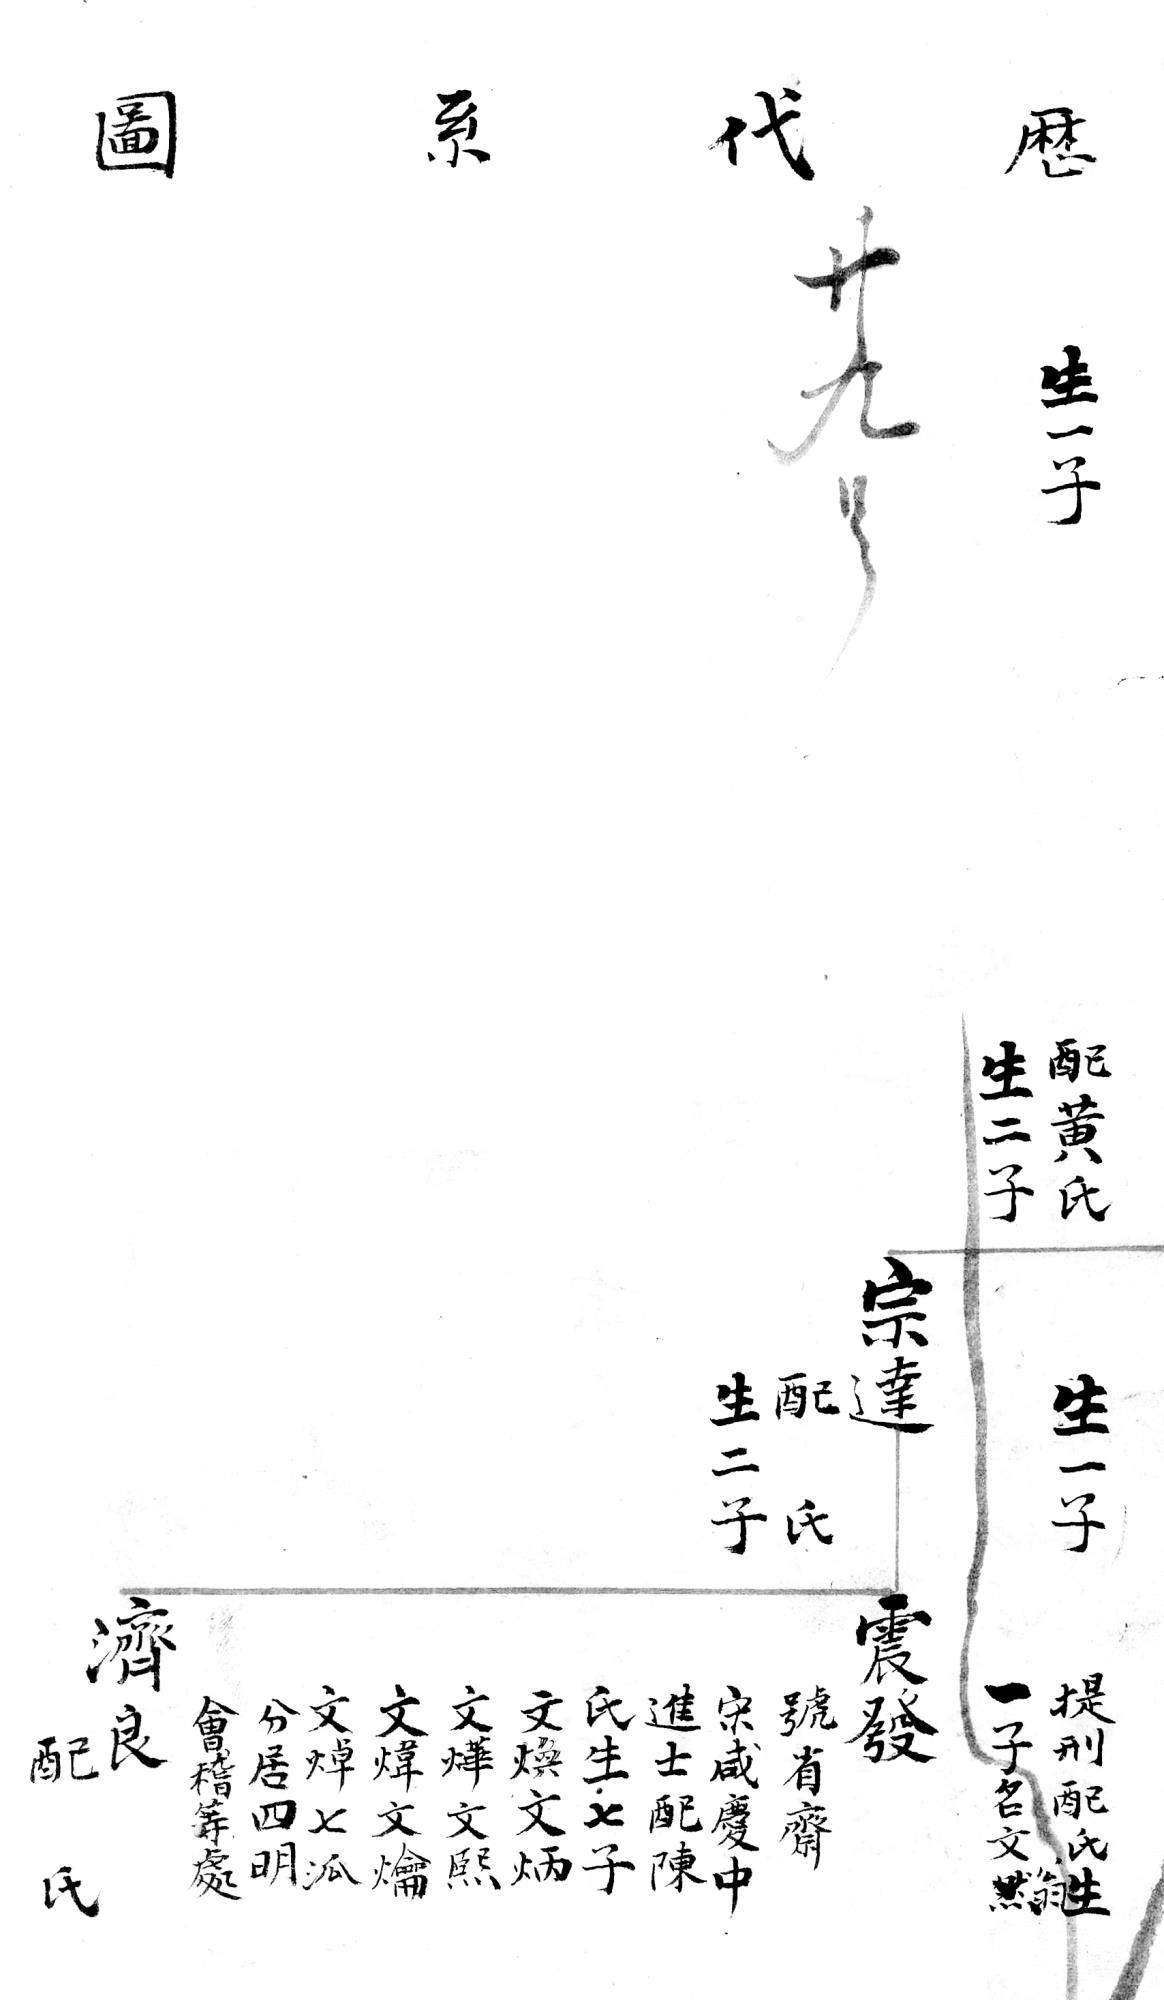 歷代系圖
廿九号
生一子
配黄氏
生二子
生一子
提刑配氏生
一子名文
宗達
配氏
生二子
震發
號省齋
宋咸慶中
進士配陳
氏生七子
文煥文炳
文燁文熙
文煒文爚
文焯七派
分居四明
會稽等處
濟良
配氏